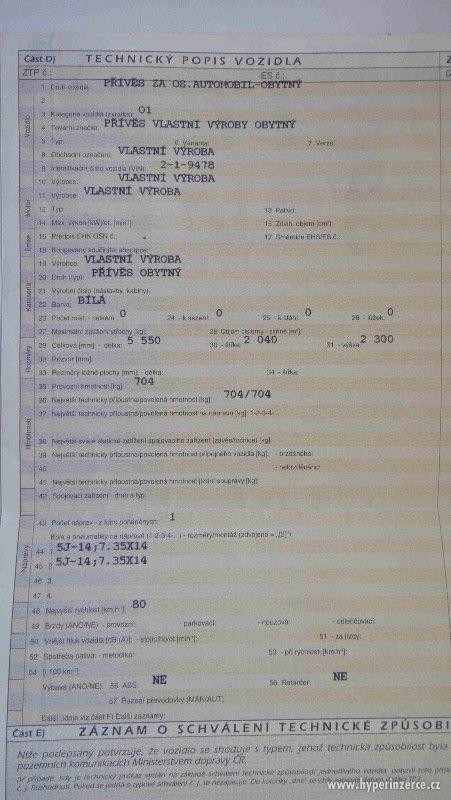 Část D) TECHNICKÝ POPIS VOZIDLA
ZTP č.: ES č.:
1 Druh vozidla: PŘÍVĚS ZA OS.AUTOMOBIL-OBYTNÝ
2
3 Kategorie vozidla (zkratka): O1
4 Tovární značka: PŘÍVĚS VLASTNÍ VÝROBY OBYTNÝ
5 Typ: 6 Varianta: 7 Verze:
8 Obchodní označení: VLASTNÍ VÝROBA
9 Identifikační číslo vozidla (VIN): 2-1-9478
10 Výrobce: VLASTNÍ VÝROBA
11 Výrobce: VLASTNÍ VÝROBA
12 Typ: 13 Palivo:
14 Max. výkon [kW]/ot. [min⁻¹]: 15 Zdvih. objem [cm³]:
16 Předpis EHK OSN č.: 17 Směrnice EHS/ES č.:
18 Korigovaný součinitel absorpce:
19 Výrobce: VLASTNÍ VÝROBA
20 Druh (typ): PŘÍVĚS OBYTNÝ
21 Výrobní číslo (nástavby, kabiny):
22 Barva: BÍLÁ
23 Počet míst - celkem: 0 24 - k sezení: 0 25 - k stání: 0 26 - lůžek: 0
27 Maximální zatížení střechy [kg]: 28 Objem cisterny - skříně [m³]:
29 Celková [mm] - délka: 5 550 30 - šířka: 2 040 31 - výška: 2 300
32 Rozvor [mm]:
33 Rozměry ložné plochy [mm] - délka: 34 - šířka:
35 Provozní hmotnost [kg]: 704
36 Největší technicky přípustná/povolená hmotnost [kg]: 704/704
37 Největší technicky přípustná/povolená hmotnost na nápravu [kg]: 1-2-3-4-
38 Největší svislé statické zatížení spojovacího zařízení (závěs/točnice) [kg]:
39 Největší technicky přípustná/povolená hmotnost přípojného vozidla [kg]: - brzděného:
40 - nebrzděného:
41 Největší technicky přípustná/povolená hmotnost jízdní soupravy [kg]:
42 Spojovací zařízení - druh a typ:
43 Počet náprav - z toho poháněných: 1
Kola a pneumatiky na nápravě (1-2-3-4-...) - rozměry/montáž
44 1. 5J-14;7.35X14
45 2. 5J-14;7.35X14
46 3.
47 4.
48 Nejvyšší rychlost [km.h⁻¹]: 80
49 Brzdy (ANO/NE) - provozní: - parkovací: - nouzová: - odlehčovací:
50 Vnější hluk vozidla [dB (A)] - stojícího/ot [min⁻¹]: 51 - za jízdy:
52 Spotřeba paliva: - metodika: 53 - při rychlosti [km.h⁻¹]:
54 [l.100 km⁻¹]
Výbava (ANO/NE) 55 ABS: NE 56 Retardér: NE
57 Řazení převodovky (MAN/AUT):
Další údaje viz část F) Další záznamy:
Část E) ZÁZNAM O SCHVÁLENÍ TECHNICKÉ ZPŮSOBI
Níže podepsaný potvrzuje, že vozidlo se shoduje s typem, jehož technická způsobilost byla
pozemních komunikacích Ministerstvem dopravy ČR.
www.hyperinzerce.cz